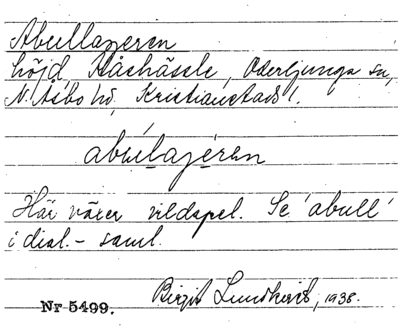 Abullageren
höjd, Kåshässle, Oderljunga sn,
N. Åsbo hd, Kristianstads l.
abúlajéren
Här växer vildapel. Se 'abull'
i dial.- saml.
Birgit Lundkvist, 1938.
Nr 5499.